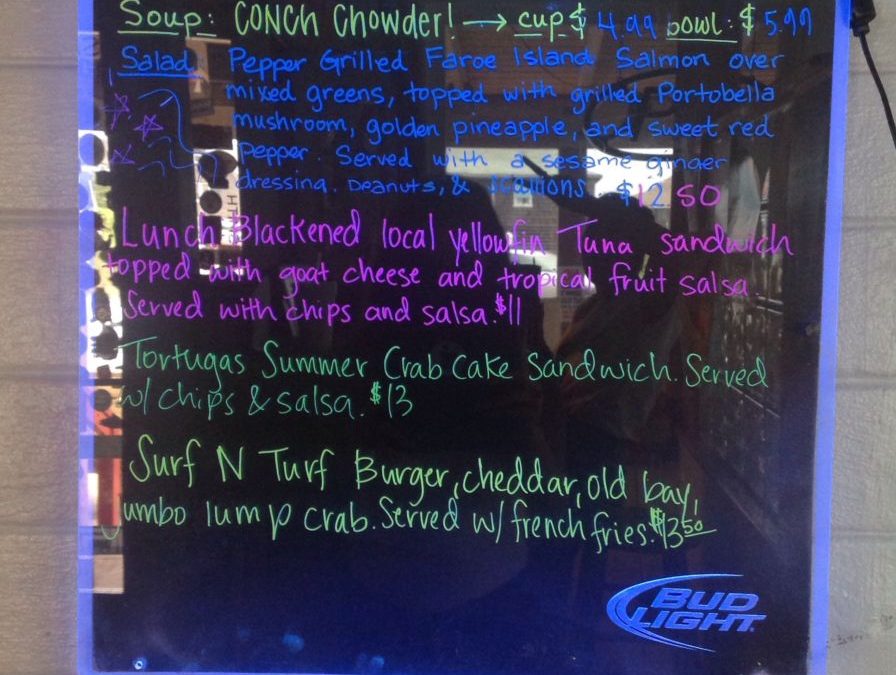 Soup: CONCH Chowder! → cup $ 4.99 bowl: $ 5.99
Salad Pepper Grilled Faroe Island Salmon over
mixed greens, topped with grilled Portobella
mushroom, golden pineapple, and sweet red
pepper. Served with a sesame ginger
dressing. peanuts, & scallions. $12.50
Lunch Blackened local yellowfin Tuna sandwich
topped with goat cheese and tropical fruit salsa.
Served with chips and salsa. $11
Tortugas Summer Crab Cake Sandwich. Served
w/ chips & salsa. $13
Surf N Turf Burger, cheddar, old bay,
Jumbo lump crab. Served w/ french fries. $13.50
BUD
LIGHT